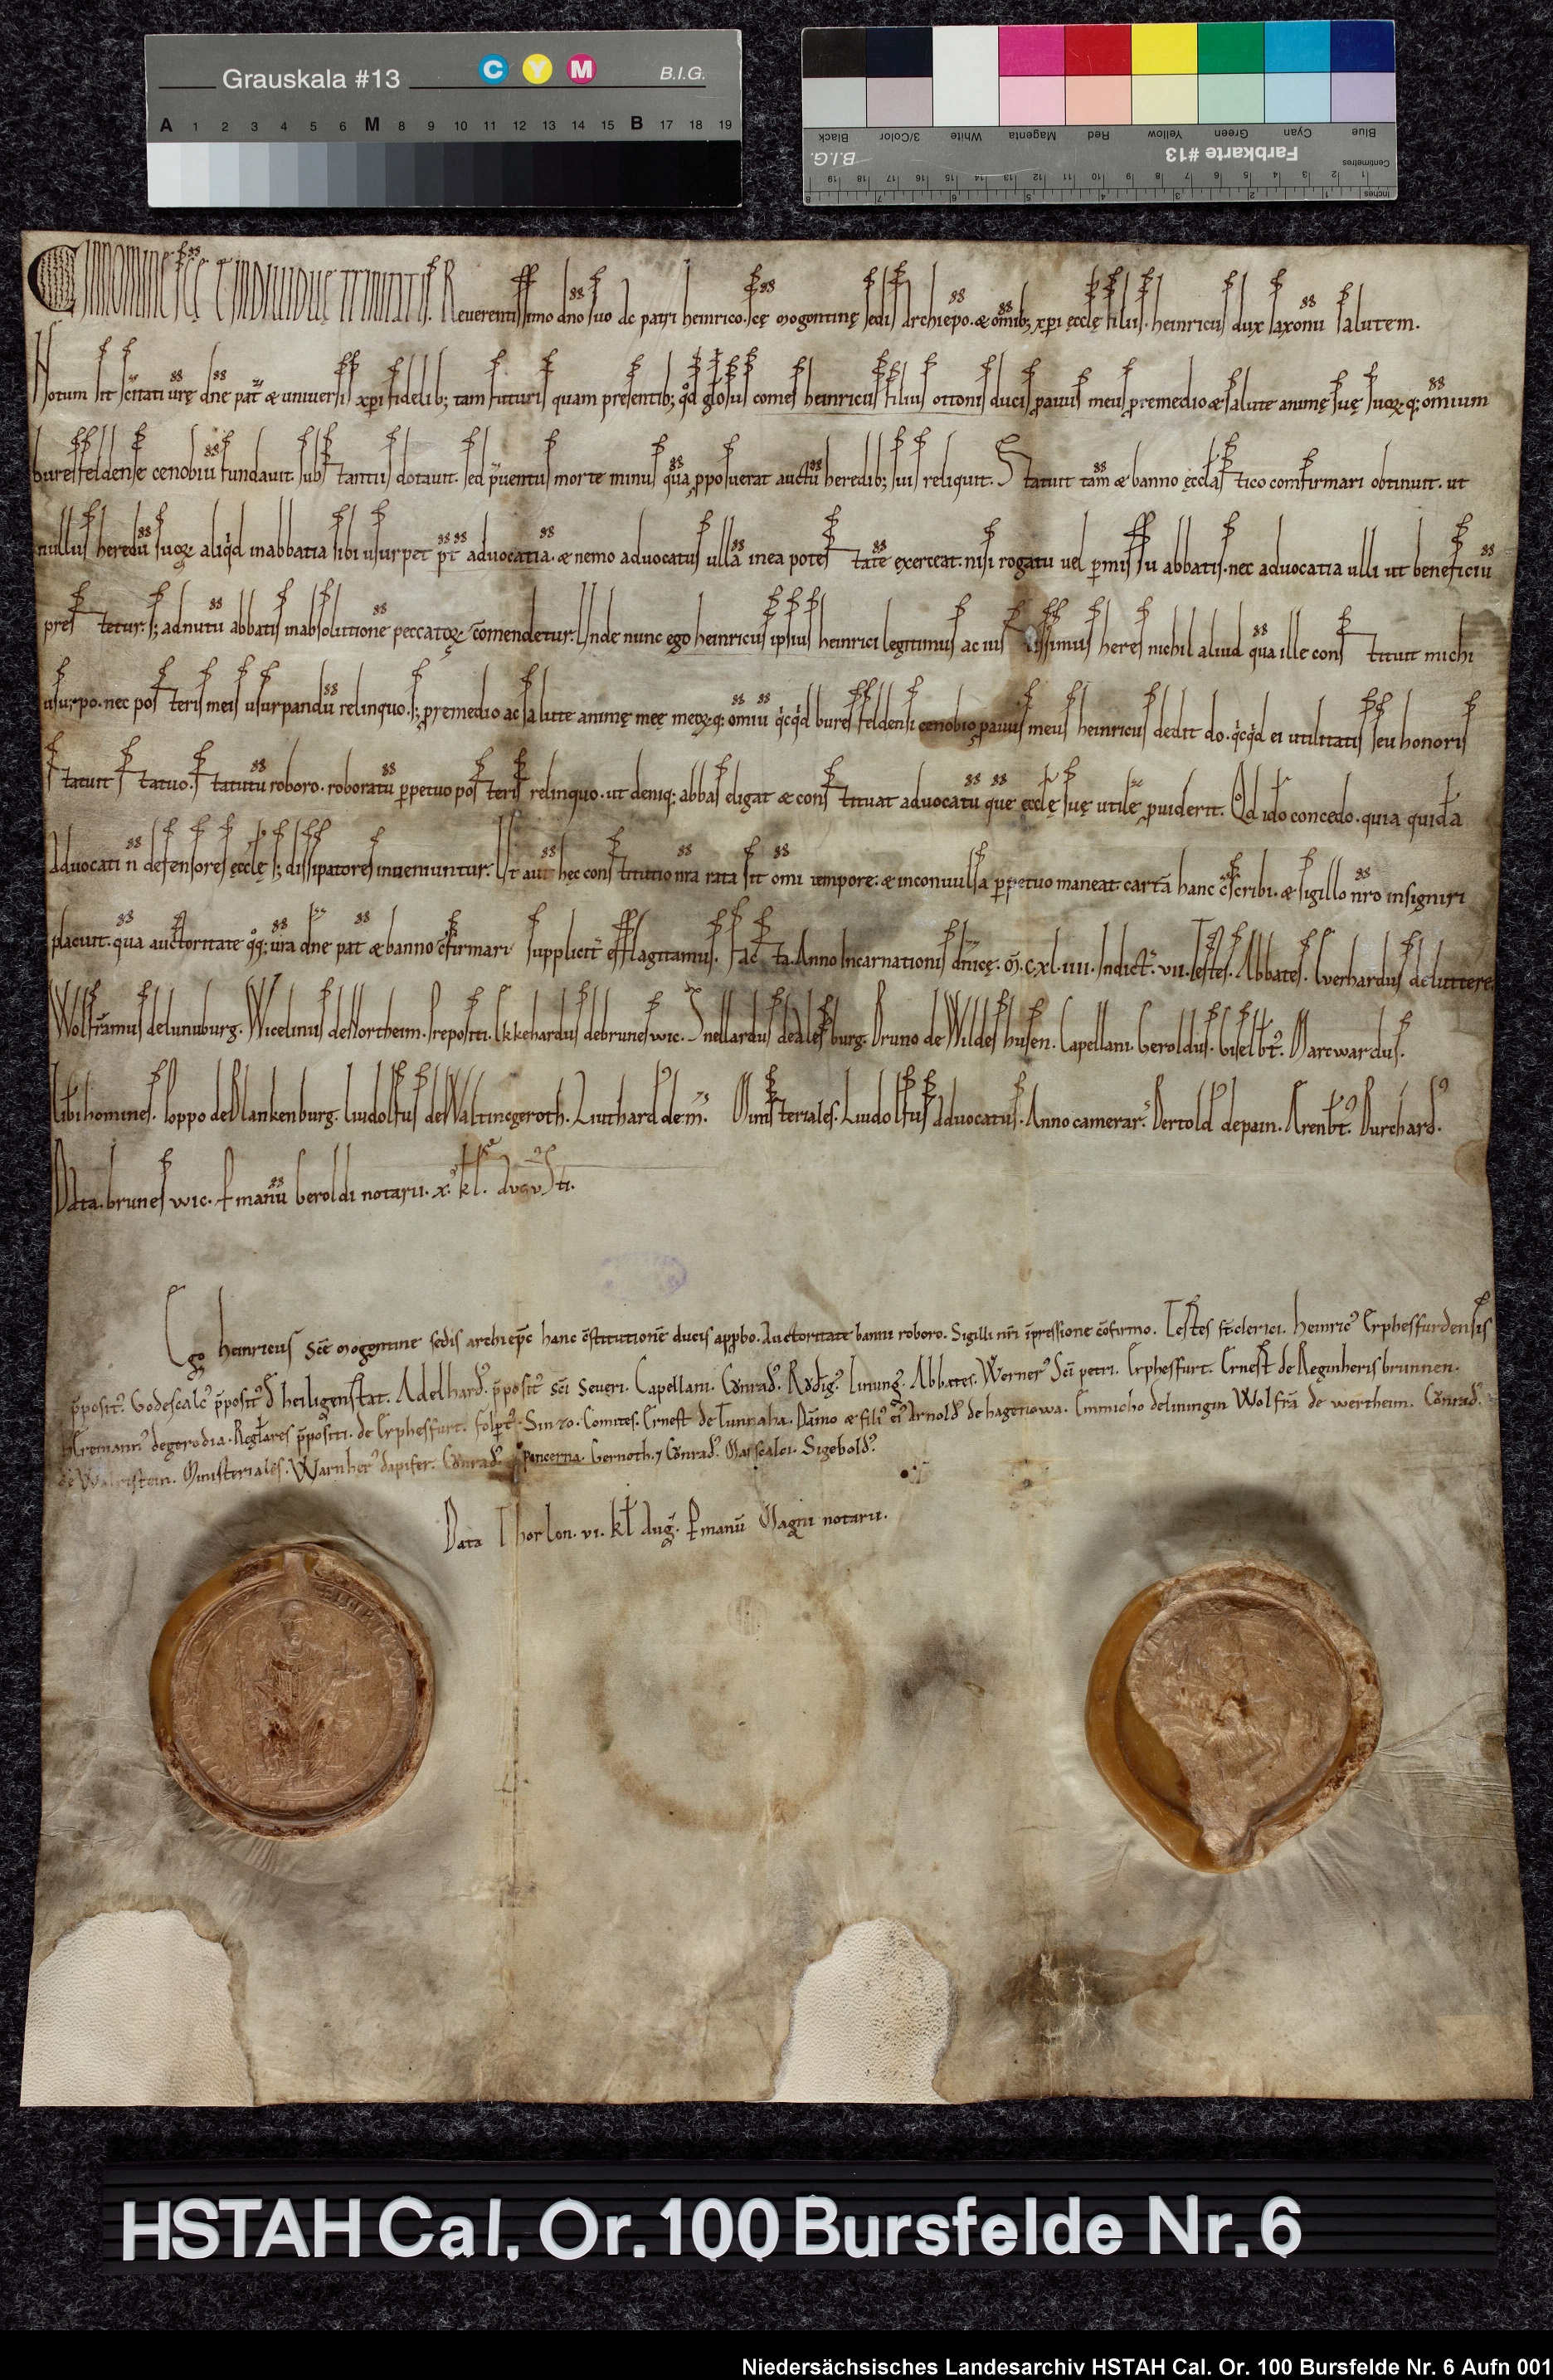 Grauskala #13 C Y M B.I.G.
A 1 2 3 4 5 6 M 8 9 10 11 12 13 14 15 B 17 18 19
Black 3/Color White Magenta Red Yellow Green Cyan Blue
B.I.G. Farbkarte #13 Centimetres
Inches
C IN NOMINE SCĘ ET INDIVIDUĘ TRINITATIS. Reuerentissimo dno suo ac patri heinrico. scę mogontinę sedis Archiepo. æ omib; xpi ęcclę filiis. heinricus dux saxonu salutem.
Notum sit scitati urę dne pat æ uniuersis xpi fidelib; tam futuris quam presentib; qd glosus comes heinricus filius ottonis ducis pauus meus premedio æ salute animę suę suoꝝ q; omium
buresfeldense cenobiu fundauit. subs tantiis dotauit. sed puentus morte minus qua pposuerat auctu heredib; suis reliquit. Statuit tam æ banno ęcclas tico comfirmari obtinuit. ut
nullus heredu suoꝝ aliqd inabbatia sibi usurpet pt aduocatia. æ nemo aduocatus ulla inea potes tate exerceat. nisi rogatu uel pmissu abbatis. nec aduocatia ulli ut beneficiu
pres tetur. s; adnutu abbatis inabsolutione peccatoꝝ comendetur. Unde nunc ego heinricus ipsius heinrici legitimus ac ius tissimus heres nichil aliud qua ille cons tituit michi
usurpo. nec pos teris meis usurpandu relinquo. s; premedio ac salute animę meę meoꝝ q; omiu qcqd buresfeldensi cenobio pauus meus heinricus dedit do. qcqd ei utilitatis seu honoris
s tatuit s tatuo. s tatutu roboro. roboratu ppetuo pos teris relinquo. ut deniq; abbas eligat æ cons tituat aduocatu que ęcclę suę utile puiderit. Qd ido concedo. quia quida
Aduocati n defensores ęcclę s; dissipatores inueniuntur. Ut aut hęc cons titutio nra rata sit omi tempore. æ inconuulsa ppetuo maneat. carta hanc cscribi. æ sigillo nro insigniri
placuit. qua auctoritate qq; ura dne pat æ banno cfirmari supplicit efflagitamus. Fac ta. Anno Incarnationis dnicę. M. c. xl. iiii. Indict. vii. testes. Abbates. Everhardus de luttere.
Wolframus de luniburg. Wicelinus de Northeim. Prepositi. Ekkehardus de bruneswic. Snellardus de dlesburg. Bruno de Wildeshusen. Capellani. Geroldus. Giselbt. Marcwardus.
Libi homines. Poppo de Blankenburg. Liudolfus de Waltingeroth. Liuthard de m. Minis teriales. Liudolfus Aduocatus. Anno camerar. Bertold de pain. Arenbt. Burchard.
Data. bruneswic. p manu beroldi notarii. x. kl. Avgvsti.
Ego heinricus sce mogontine sedis archiepc hanc cstitutione ducis appbo. Auctoritate banni roboro. Sigilli nri ipressione cofirmo. Testes st clerici. heinric Erphesfurdensis
pposit. Godescalc pposit d heiligenstat. Adelhard. pposit sci Seueri. Capellani. Conrad. Rodig. linung. Abbates. Werner Sci petri. Erphesfurt. Ernest de Reginherisbrunnen.
Hremann degerodia. Reglares ppositi. de Erphesfurt. folpt. Sinzo. Comites. Ernest de Tunnaha. Damo æ fili ei Arnold de hagenowa. Emmicho de liningin Wolfra de wertheim. Conrad
de Ministeriales. Warnher dapifer. Conrad pincerna. Gernoth. 7 Conrad. Marscalci. Sigebold.
Data Thorlon. vi. kl Aug. p manu Magni notarii.
HSTAH Cal. Or. 100 Bursfelde Nr. 6
Niedersächsisches Landesarchiv HSTAH Cal. Or. 100 Bursfelde Nr. 6 Aufn 001